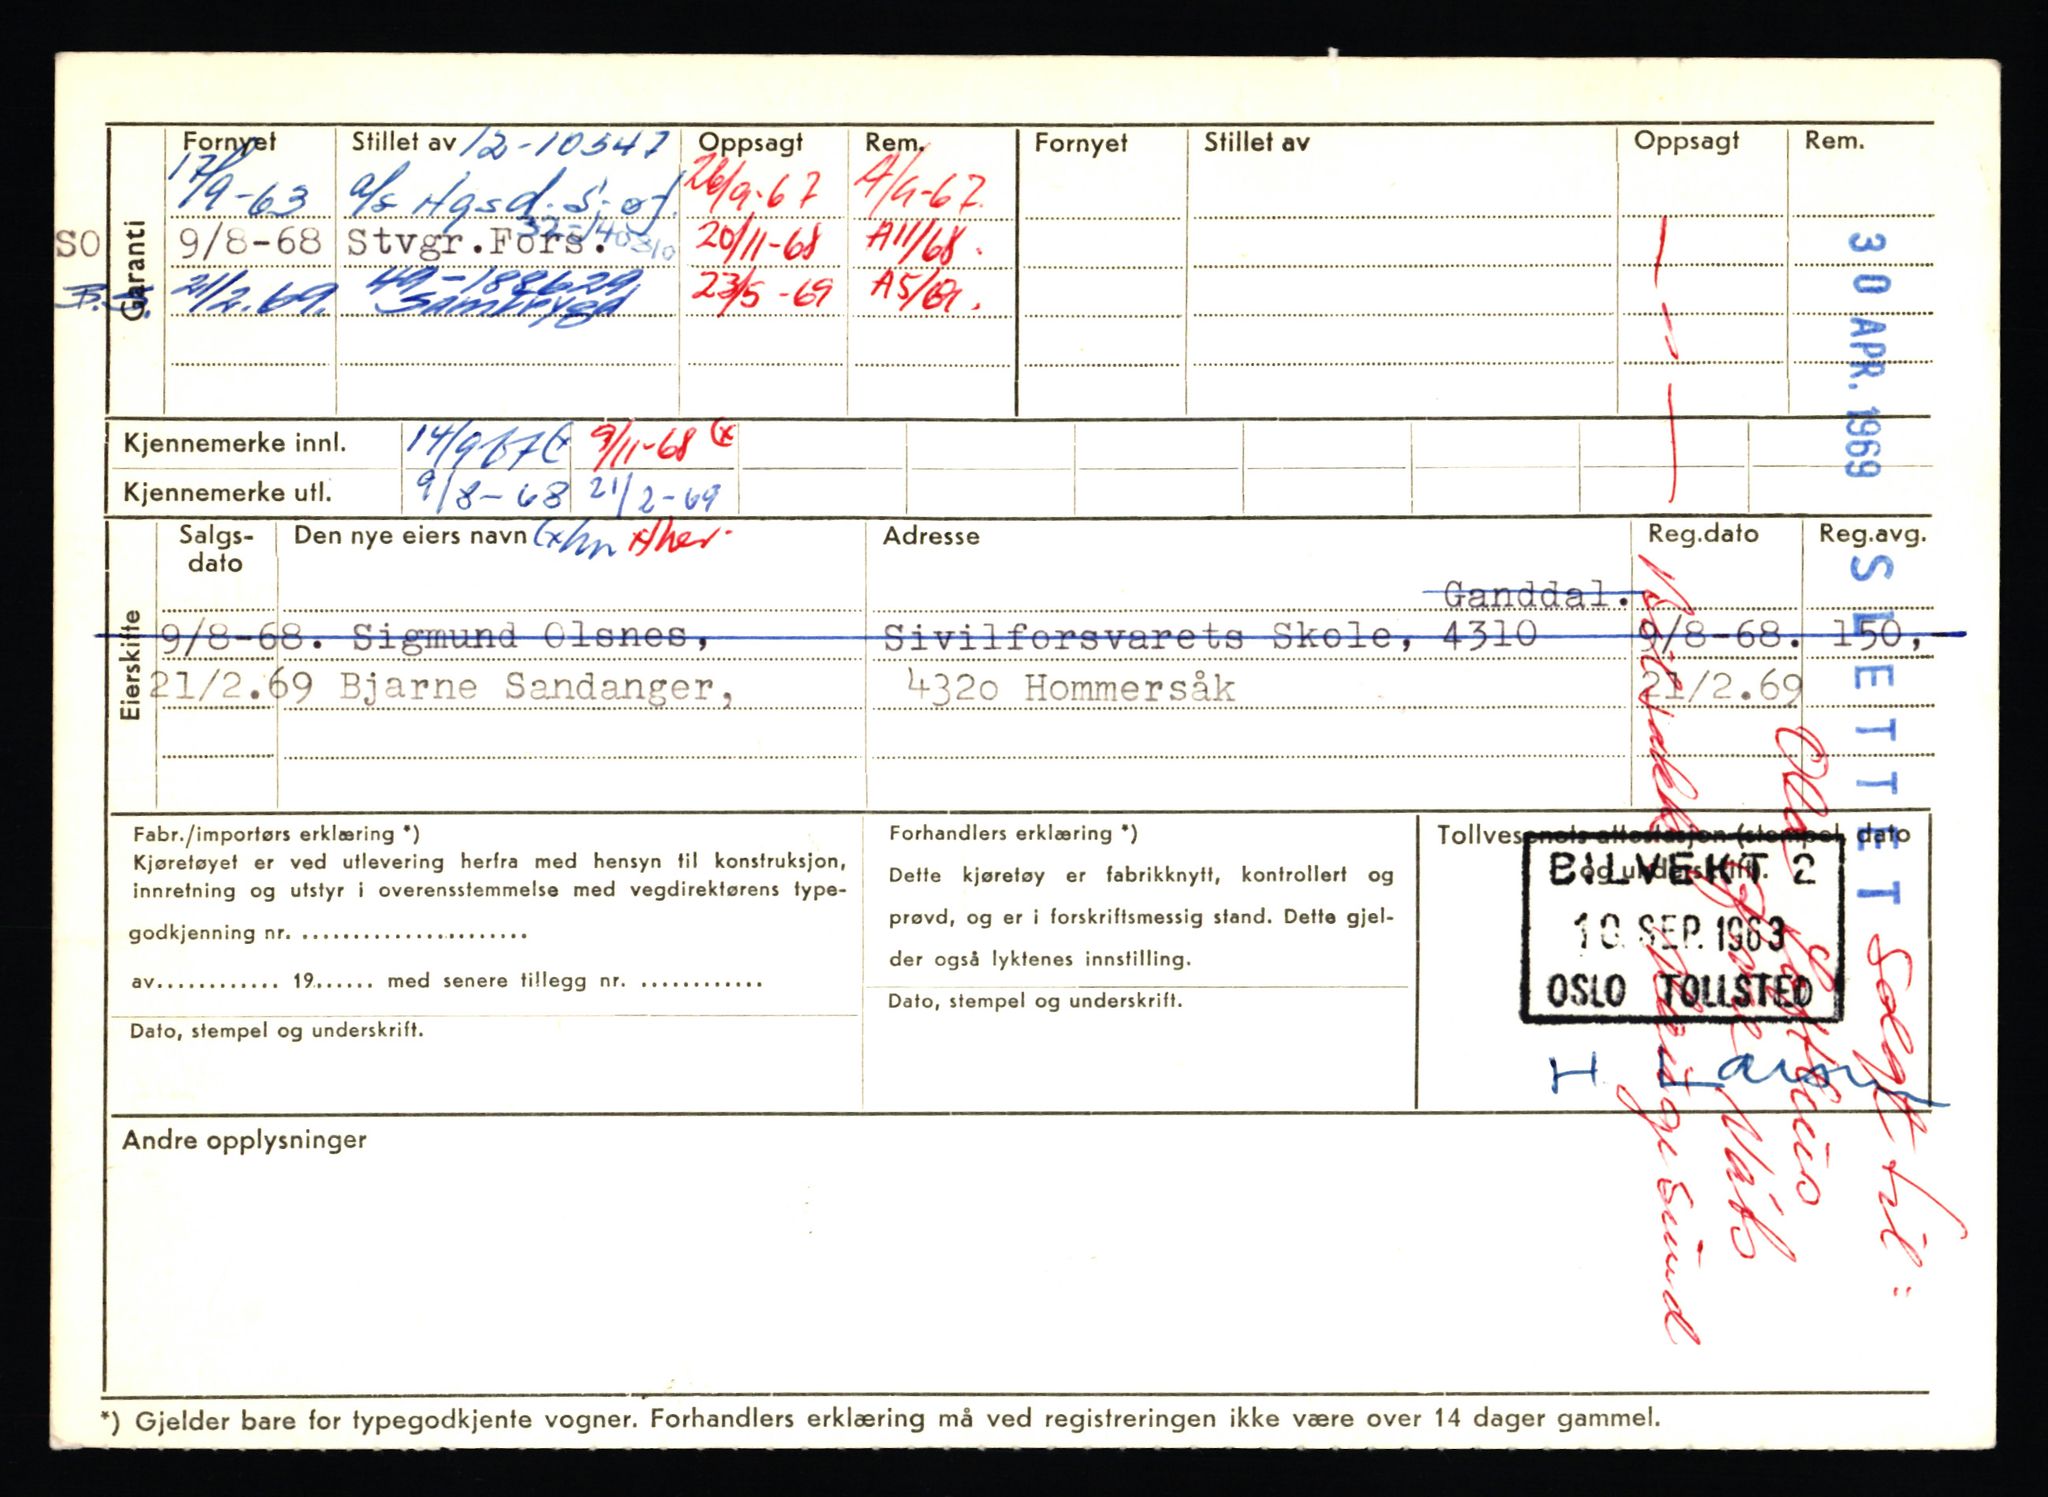 Garanti
Fornyet Stillet av 12-10347 Oppsagt Rem. Fornyet Stillet av Oppsagt Rem.
17/9-63 a/s Hgsd. S. og J. 26/9-67 A/9-67.
32-140310
SO 9/8-68 Stvgr.Fors. 20/11-68 A11/68.
21/2.69. 49-188629 23/5-69 A5/69.
Samtrygd
30 APR. 1969
Kjennemerke innl. 14/9-67 (x 9/11-68 (x
Kjennemerke utl. 9/8-68 21/2-69
Eierskifte
Salgs-dato Den nye eiers navn Adresse Reg.dato Reg.avg.
Ganddal.
9/8-68. Sigmund Olsnes, Sivilforsvarets Skole, 4310 9/8-68. 150,-
21/2.69 Bjarne Sandanger, 4320 Hommersåk 21/2.69
SLETTET
Solgt til:
Fabr./importørs erklæring *)
Kjøretøyet er ved utlevering herfra med hensyn til konstruksjon,
innretning og utstyr i overensstemmelse med vegdirektørens type-
godkjenning nr. ......................
av............ 19...... med senere tillegg nr. ............
Dato, stempel og underskrift.
Forhandlers erklæring *)
Dette kjøretøy er fabrikknytt, kontrollert og
prøvd, og er i forskriftsmessig stand. Dette gjel-
der også lyktenes innstilling.
Dato, stempel og underskrift.
Tollvesenets attestasjon (stempel, dato
og underskrift).
BILVEKT 2
10. SEP. 1963
OSLO TOLLSTED
H. Larsen
Andre opplysninger
*) Gjelder bare for typegodkjente vogner. Forhandlers erklæring må ved registreringen ikke være over 14 dager gammel.